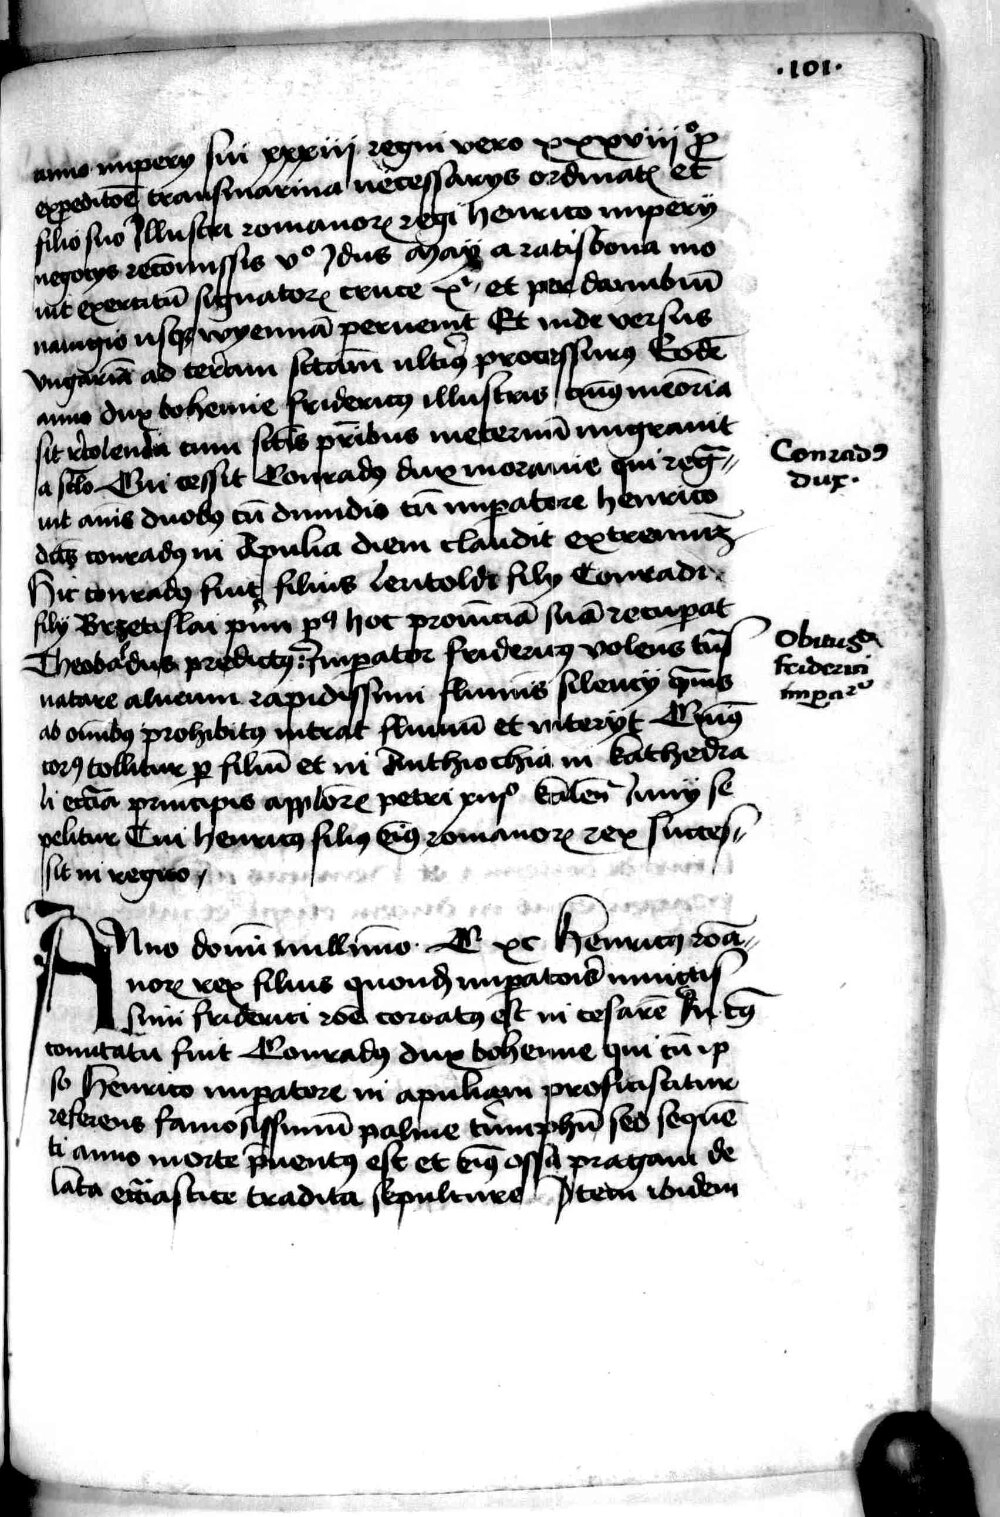 ·101·
anno impery sui xxxiij regni vero xxxviijº p
expeditōe transmarina necessarys ordinatꝭ et
filio suo Illustri romanorꝝ regi henrico impery
negocys recōmissis vº Idus May a ratisbona mo
uit exercitū signatorꝝ cruce xͥ et per danubiū
nauigio usqꝫ wyennā peruenit Et inde versus
vngariā ad terram sctām ulteriꝰ processurꝰ Eodē
anno dux bohemie fridericꝰ illustris cuiꝰ meōria
sit recolenda cum sctīs pr̄ibus in eternū migrauit
a sclō Cui cessit Conradꝰ dux morauie qui regna//
uit anīs duobꝰ cū dimidio cū imperatore henrico
dictꝰ conradꝰ in Apulia diem claudit extremum
Hic conradꝰ fuit filius leutoldi fily Conradi
fily Brzetislai primi pꝰ hoc prouīciā suā recuperat
Theobaldus predictꝰ: Imperator fridericꝰ volens trās
natare alueum rapidissimi fluminis silency quāuis
ab omībꝰ prohibitꝰ intrat fluuiū et interyt Cuiꝰ
corpꝰ tollitur per filiū et in Anthiochia in kathedra
li ecclīa principis applōrꝝ petri xiijº kalen̄ Iuny se
pelitur Cui henricꝰ filiꝰ eiꝰ romanorꝝ rex succes//
sit in regno
Conradꝰ
dux·
Obitus
friderici
imperaͬ
Anno domini millīmo· C xc henricꝰ roma//
norꝝ rex filius quondā imperatoris inuictis
simi friderici rōe coroatꝰ est in cesarē In cuiꝰ
comitatu fuit Conradꝰ dux bohemie qui cū ip
so henrico imperatore in apuliam proficiscitur
referens famosissimū palme triumphū sed sequē
ti anno morte preuentꝰ est et eiꝰ ossa pragam de
lata ecclīastice tradita sepulture Item ibidem